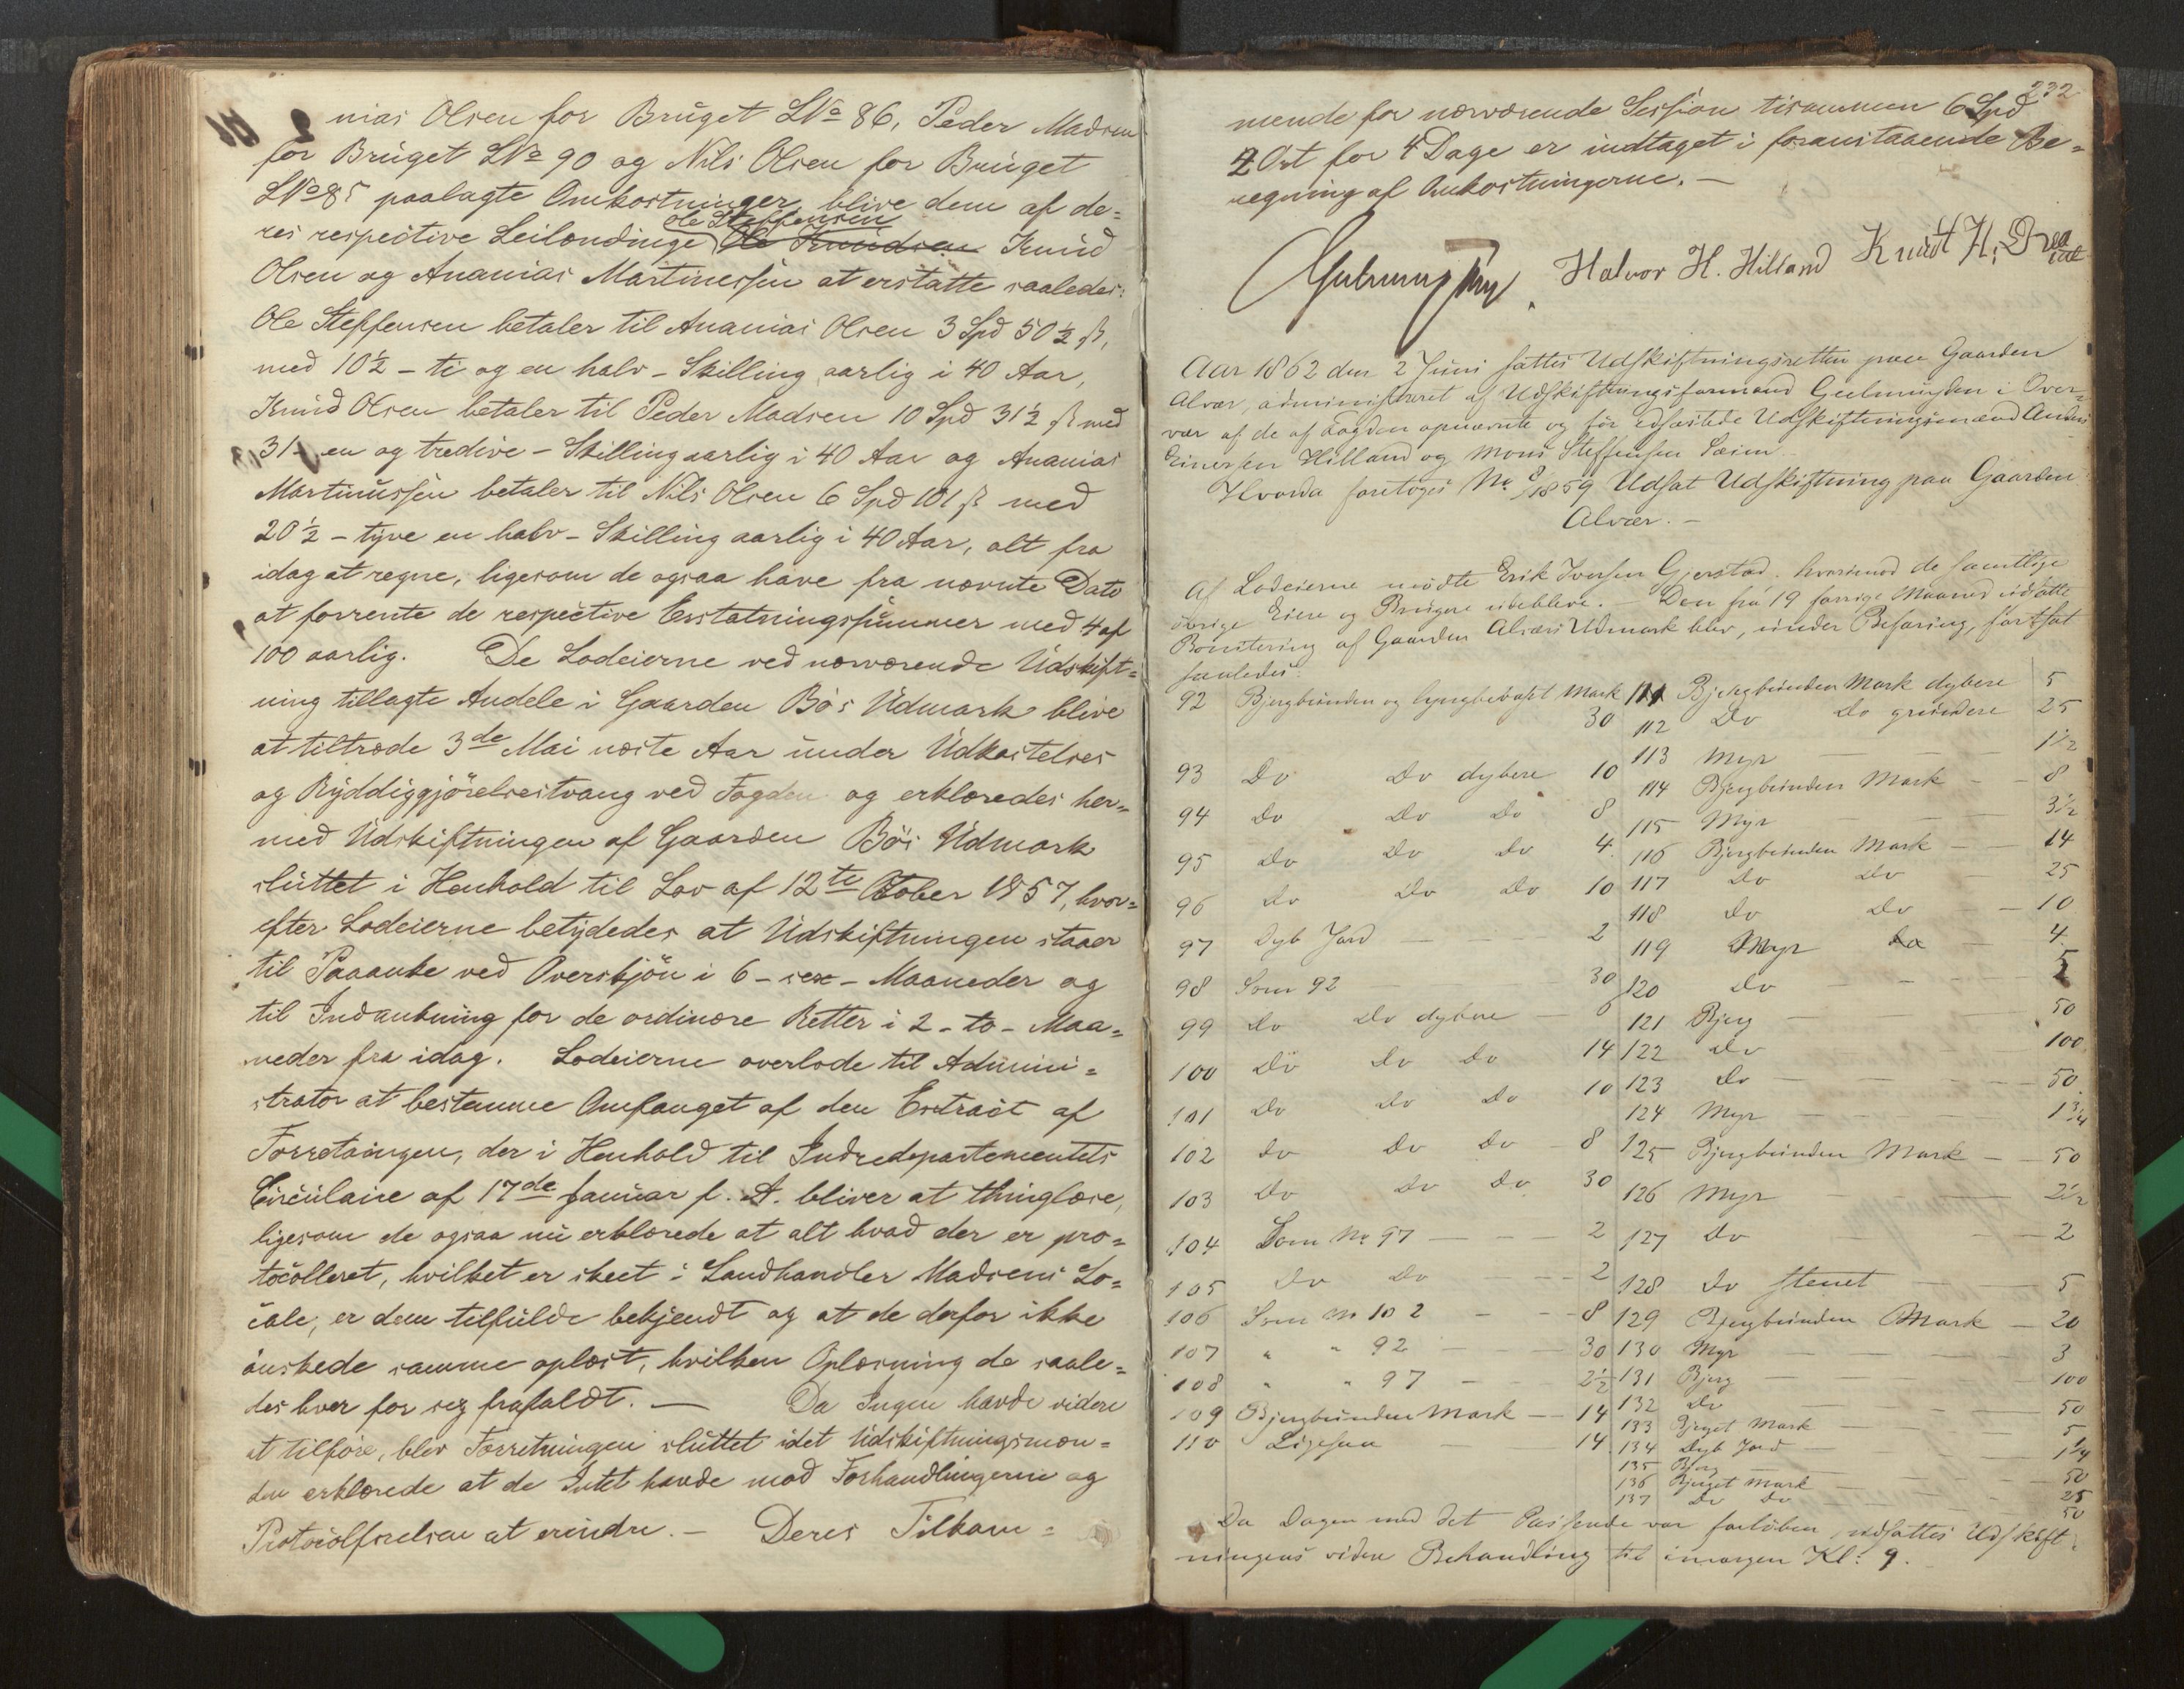 nias Olsen for Bruget LNo 86, Peder Madsen
for Bruget LNo 90 og Nils Olsen for Bruget
LNo 85 paalagte Omkostninger, blive dem af de=
res respective Leilændinge Ole Steffensen Ole Knudsen Knud
Olsen og Ananias Martinussen at erstatte saaledes:
Ole Steffensen betaler til Ananias Olsen 3 Spd 50 1/2 ß,
med 10 1/2 - ti og en halv - Skilling aarlig i 40 Aar,
Knud Olsen betaler til Peder Madsen 10 Spd 31 1/2 ß med
31 - en og tredive - Skilling aarlig i 40 Aar og Ananias
Martinussen betaler til Nils Olsen 6 Spd 101 ß med
20 1/2 - tyve en halv - Skilling aarlig i 40 Aar, alt fra
idag at regne, ligesom de ogsaa have fra nævnte Dato
at forrente de respective Erstatningssummer med 4 af
100 aarlig. De Lodeierne ved nærværende Udskift=
ning tillagte Andele i Gaarden Bös Udmark blive
at tiltræde 3de Mai næste Aar under Udkastelses
og Ryddiggjörelsestvang ved Fogden og erklæredes her=
med Udskiftningen af Gaarden Bös Udmark
sluttet i Henhold til Lov af 12te October 1857, hvor=
efter Lodeierne betydedes at Udskiftningen staaer
til Paaanke ved Overskjön i 6 - sex - Maaneder og
til Indankning for de ordinære Retter i 2 - to - Maa=
neder fra idag. Lodeierne overlode til Admini=
strator at bestemme Omfanget af den Extract af
Forretningen, der i Henhold til Indredepartementets
Circulaire af 17de Januar f. A. bliver at thinglæse,
ligesom de ogsaa nu erklærede at alt hvad der er pro=
tocolleret, hvilket er skeet i Landhandler Madsens Lo=
cale, er dem tilfulde bekjendt og at de derfor ikke
önskede samme oplæst, hvilken Oplæsning de saale=
des hver for sig frafaldt. — Da Ingen havde videre
at tilföre, blev Forretningen sluttet idet Udskiftningsmæn=
den erklærede at de Intet havde mod Forhandlingerne og
Protocolförelsen at erindre. — Deres Tilkom=
232
mende for nærværende Session tisammen 6 Spd
2 Ort for 4 Dage er indtaget i foranstaaende Be=
regning af Omkostningerne. —
Halvor H. Hilland Knudt H.
Aar 1862 den 2 Juni sattes Udskiftningsretten paa Gaarden
Alvær, administreret af Udskiftningsformand Gulmundsen i Over=
vær af de af Fogden opnævnte og för edfæstede Udskiftningsmænd Anders
Einersen Hilland og Mons Steffensen Sæim.
Hvorda foretoges No 8/1859 Udsat Udskiftning paa Gaarden
Alvær. —
Af Lodeierne mödte Erik Iversen Gjerstad, hvorimod de samtlige
övrige Eiere og Brugere udebleve. — Den fra 19 forrige Maaned udsatte
Bonitering af Gaarden Alværs Udmark blev, under Befaring, fortsat
saaledes:
92 Bjergbunden og lyngbevoxet Mark 30
93 Do Do dybere 10
94 Do Do Do 8
95 Do Do Do 4
96 Do Do Do 10
97 Dyb Jord — 2
98 Som 92 — 30
99 Do Do dybere — 6
100 Do Do Do 14
101 Do Do Do 10
102 Do Do Do 8
103 Do Do Do 30
104 Som No 97 — 2
105 Do Do — 2
106 Som No 102 — 8
107 " " 92 — 30
108 " " 97 — 2 1/2
109 Bjergbunden Mark — 14
110 Ligesaa — 14
111 Bjergbunden Mark dybere 5
112 Do Do grundere 25
113 Myr — 1 1/2
114 Bjergbunden Mark — 8
115 Myr — 3 1/2
116 Bjergbunden Mark — 14
117 Do Do — 25
118 Do Do — 10
119 Myr — 4
120 Do —
121 Bjerg — 50
122 Do — 100
123 Do — 50
124 Myr — 1 3/4
125 Bjergbunden Mark — 50
126 Myr — 2 1/2
127 Do — 2
128 Do stenet — 5
129 Bjergbunden Mark — 20
130 Myr — 3
131 Bjerg — 100
132 Do — 50
133 Bjerget Mark — 5
134 Dyb Jord — 1 1/4
135 Bjerg — 50
136 Bjerget Mark — 25
137 Do Do — 50
Da Dagen med det Passerede var forlöben, udsattes Udskift=
ningens videre Behandling til imorgen Kl: 9.